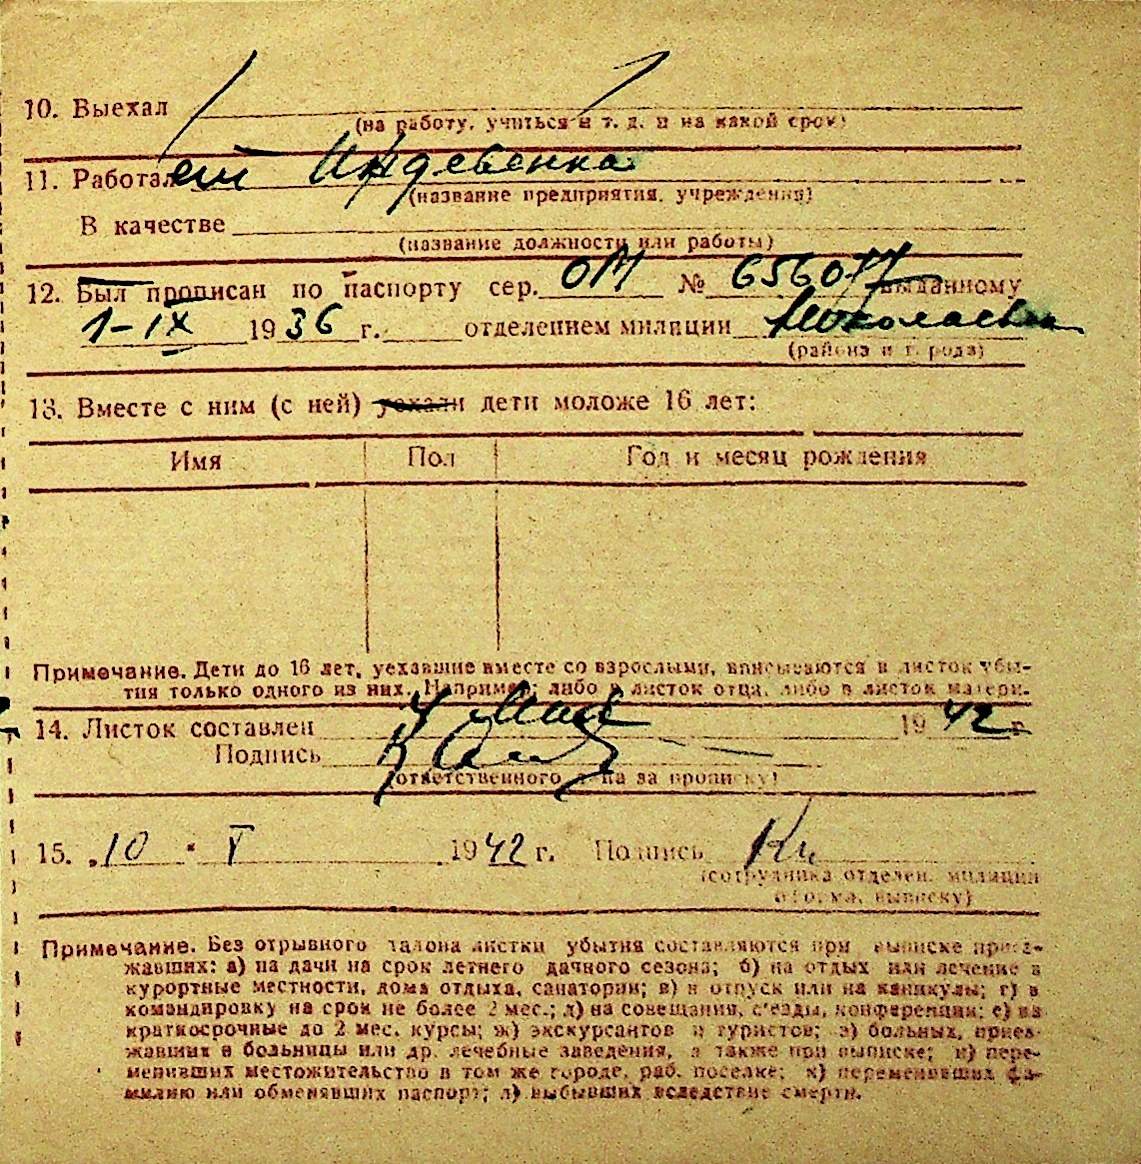 10. Выехал
(на работу, учиться и т. д. и на какой срок)
11. Работал Иждевенка
(название предприятия, учреждения)
В качестве
(название должности или работы)
12. Был прописан по паспорту сер. ОМ № 656077 выданному
1-IX 1936 г. отделением милиции
(района и города)
13. Вместе с ним (с ней) уехали дети моложе 16 лет:
Имя Пол Год и месяц рождения
Примечание. Дети до 16 лет, уехавшие вместе со взрослыми, вписываются в листок убы-
тия только одного из них. Например: либо в листок отца, либо в листок матери.
14. Листок составлен 4 мая 1942 г.
Подпись
(ответственного лица за прописку)
15. „10“ V 1942 г. Подпись
(сотрудника отделен. милиции
оформ. выписку)
Примечание. Без отрывного талона листки убытия составляются при выписке приез-
жавших: а) на дачи на срок летнего дачного сезона; б) на отдых или лечение в
курортные местности, дома отдыха, санатории; в) в отпуск или на каникулы; г) в
командировку на срок не более 2 мес.; д) на совещания, с'езды, конференции; е) на
краткосрочные до 2 мес. курсы; ж) экскурсантов и туристов; з) больных, приез-
жавших в больницы или др. лечебные заведения, а также при выписке; и) пере-
менивших местожительство в том же городе, раб. поселке; к) переменивших фа-
милию или обменявших паспорт; л) выбывших вследствие смерти.